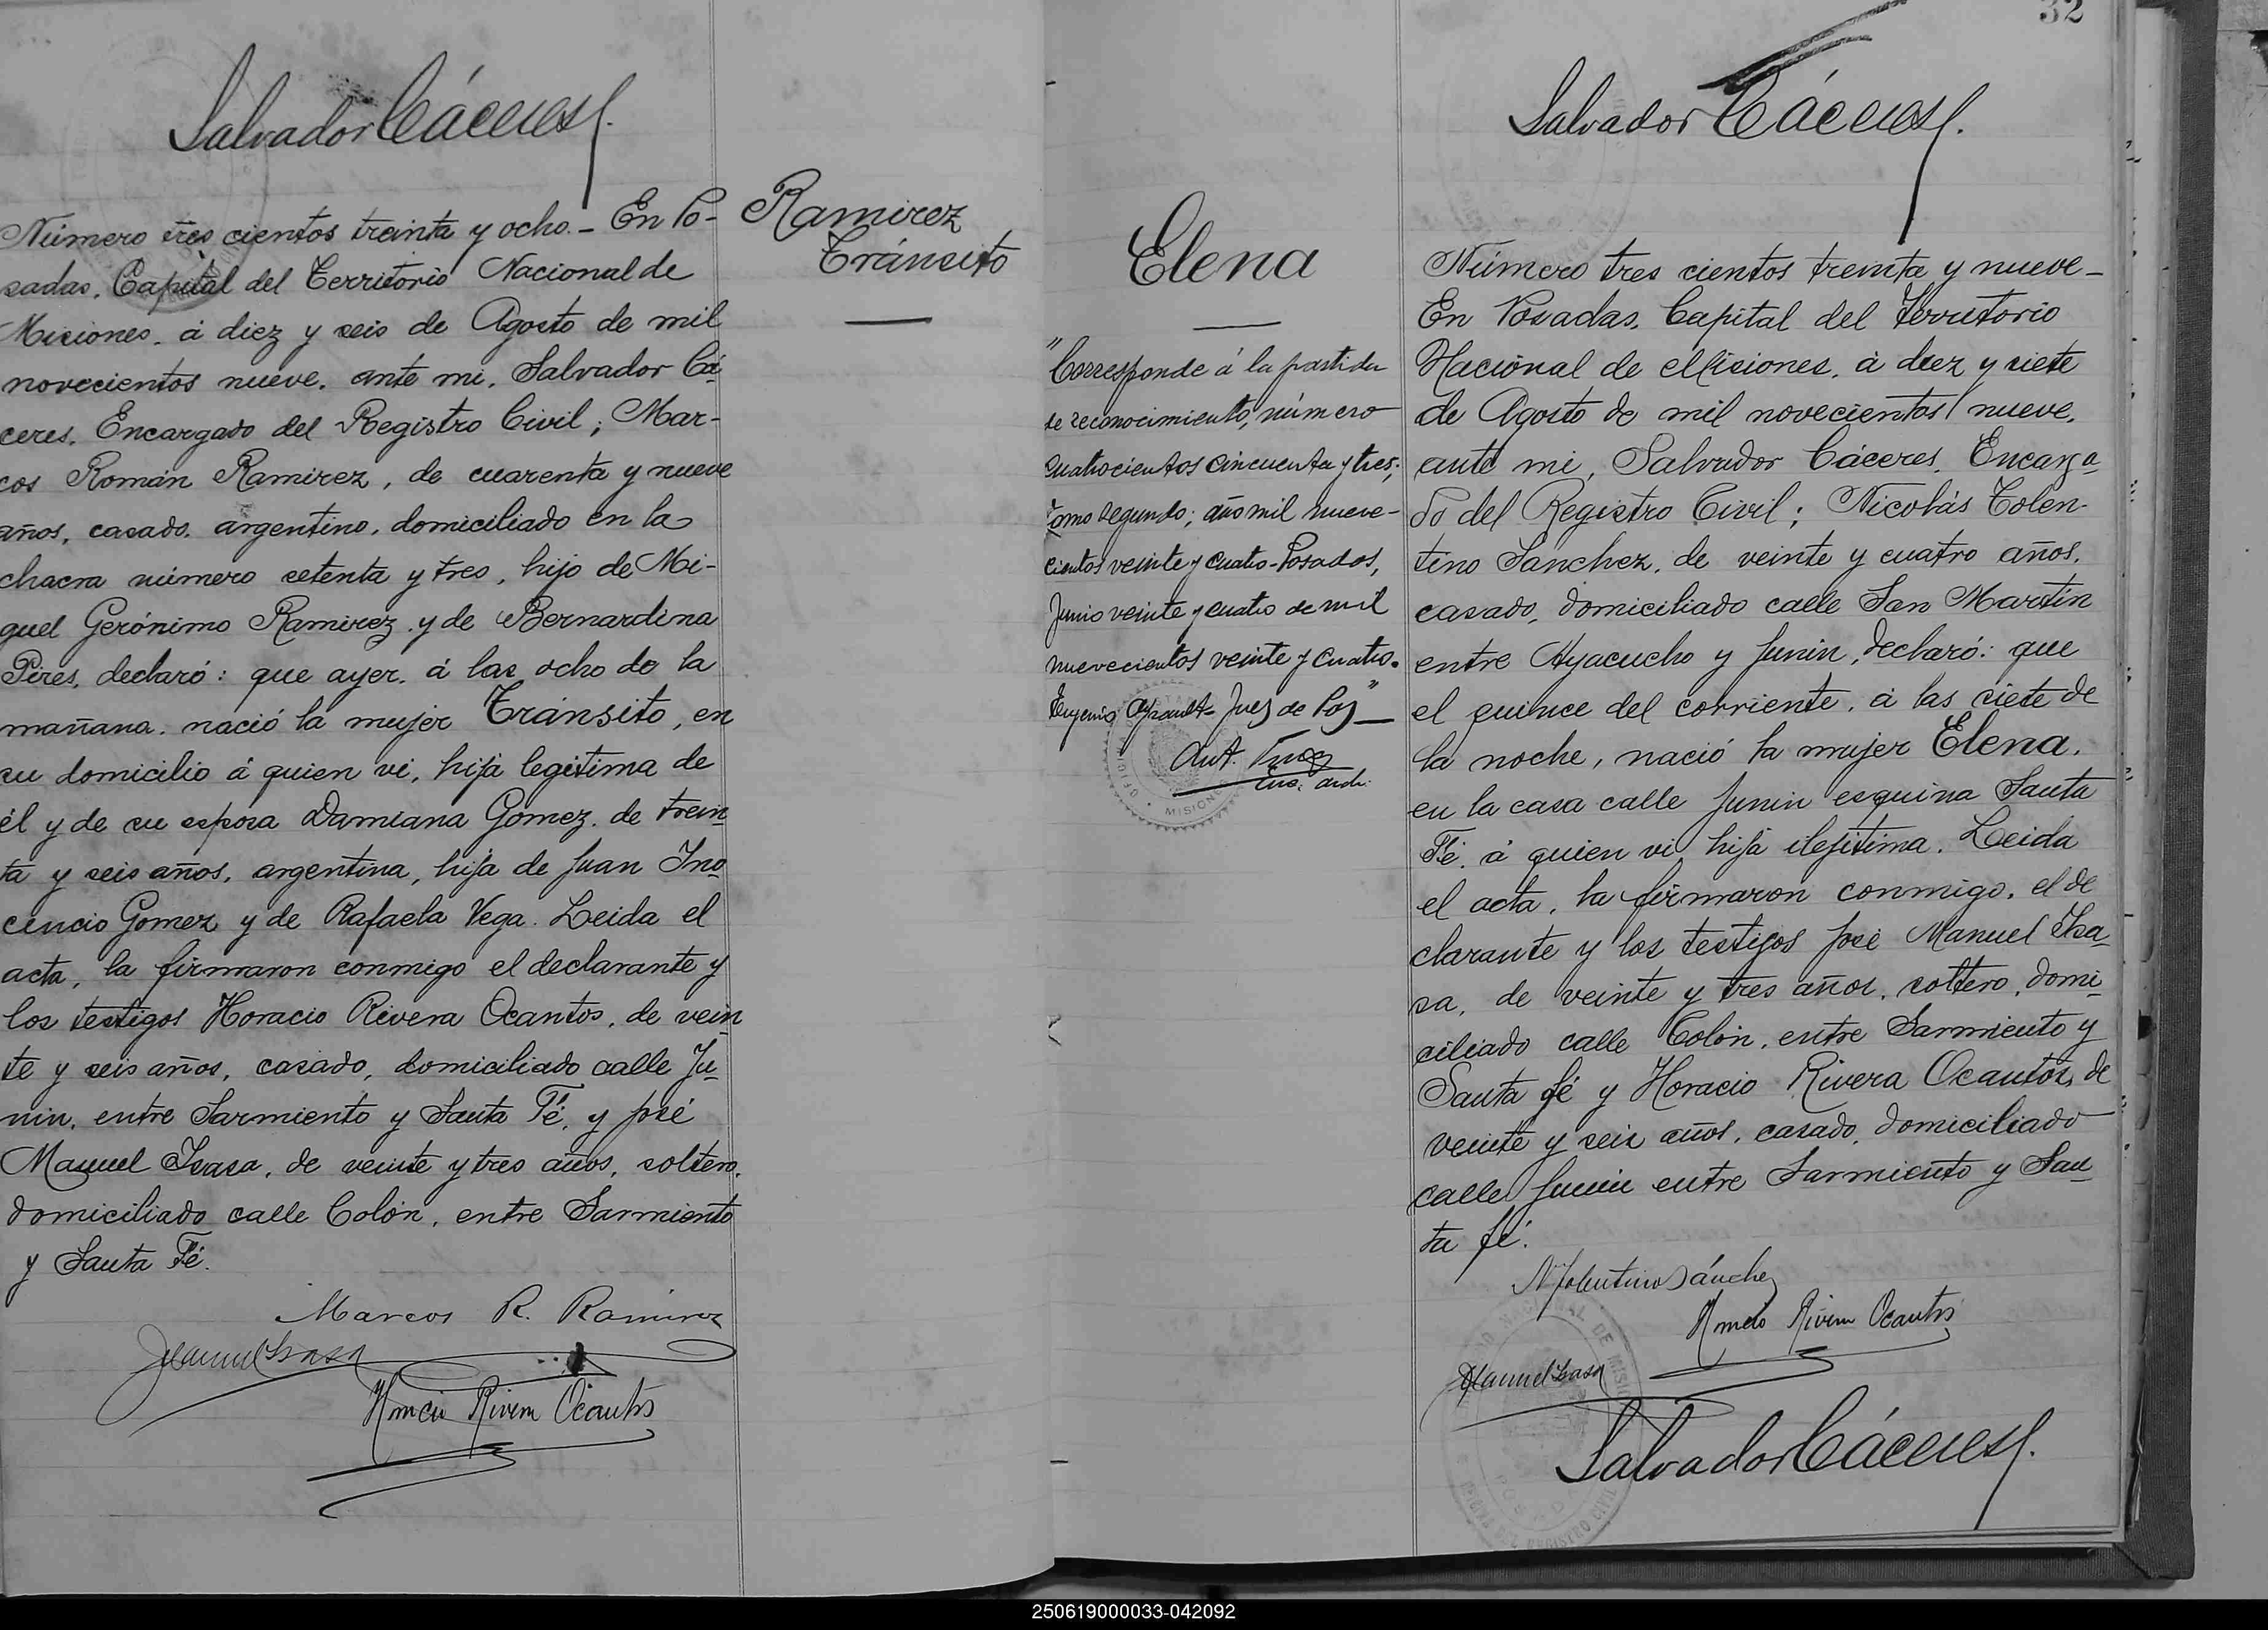 Salvador Cáceres
Número tres cientos treinta y ocho. - En Po-
sadas, Capital del Territorio Nacional de
Misiones, á diez y seis de Agosto de mil
novecientos nueve, ante mi, Salvador Cá-
ceres, Encargado del Registro Civil; Mar-
cos Román Ramirez, de cuarenta y nueve
años, casado, argentino, domiciliado en la
chacra número setenta y tres, hijo de Mi-
guel Gerónimo Ramirez y de Bernardina
Pires, declaró: que ayer, á las ocho de la
mañana, nació la mujer Tránsito, en
su domicilio á quien vi, hija legítima de
él y de su esposa Damiana Gomez, de trein
ta y seis años, argentina, hija de Juan Ino
cencio Gomez y de Rafaela Vega. Leida el
acta, la firmaron conmigo el declarante y
los testigos Horacio Rivera Ocantos, de vein
te y seis años, casado, domiciliado calle Ju-
nin, entre Sarmiento y Santa Fé, y José
Manuel Isasa, de veinte y tres años, soltero,
domiciliado calle Colón, entre Sarmiento
y Santa Fé.
Marcos R. Ramirez
JManuel Isasa
Horacio Rivera Ocantos
Ramirez
Tránsito
Elena
"Corresponde á la partida
de reconocimiento, número
cuatrocientos cincuenta y tres;
tomo segundo; año mil nueve-
cientos veinte y cuatro - Posadas,
Junio veinte y cuatro de mil
nuevecientos veinte y cuatro.
Eugenio Juez de Paz"
MISIONES
32
Salvador Cáceres
Número tres cientos treinta y nueve -
En Posadas, Capital del Territorio
Nacional de Misiones, á diez y siete
de Agosto de mil novecientos nueve,
ante mi, Salvador Cáceres, Encarga
do del Registro Civil; Nicolás Tolen-
tino Sanchez, de veinte y cuatro años,
casado, domiciliado calle San Martín
entre Ayacucho y Junin, declaró: que
el quince del corriente, á las siete de
la noche, nació la mujer Elena,
en la casa calle Junin esquina Santa
Fé, á quien vi, hija ilejítima. Leida
el acta, la firmaron conmigo, el de
clarante y los testigos José Manuel Isa-
sa, de veinte y tres años, soltero, domi-
ciliado calle Colón, entre Sarmiento y
Santa fé y Horacio Rivera Ocantos, de
veinte y seis años, casado, domiciliado
calle Junin entre Sarmiento y San-
ta fé.
N Tolentino Sánchez
Horacio Rivera Ocantos
JManuel Isasa
Salvador Cáceres
250619000033-042092